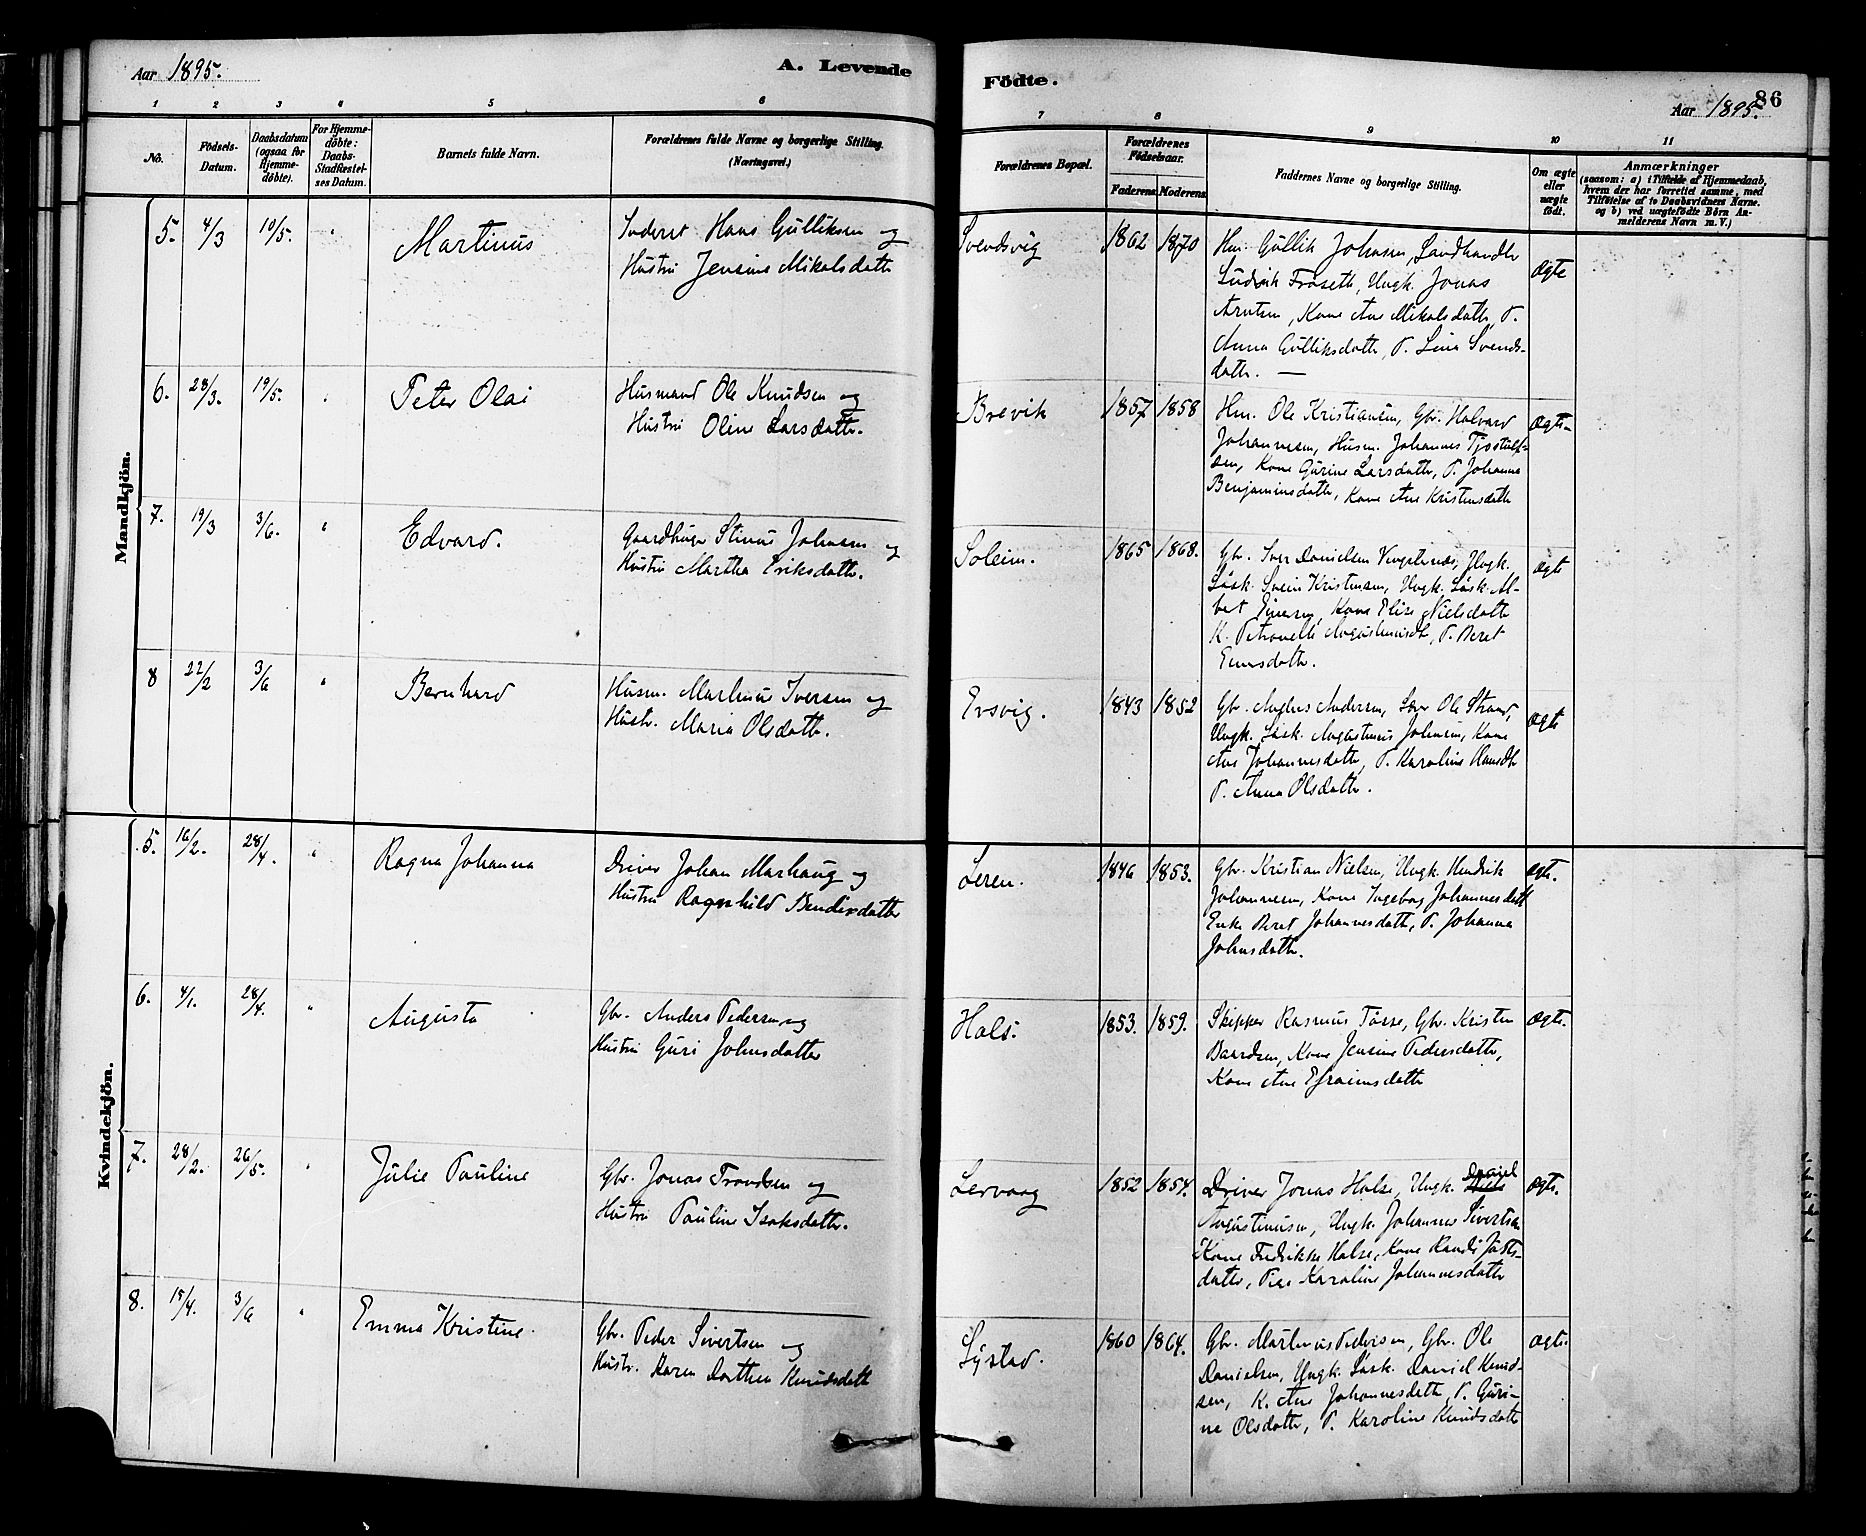 Aar 1895.
A. Levende
Födte.
86
Aar 1895.
1 2 3 4 5 6 7 8 9 10 11
No.
Födsels-
Datum.
Daabsdatum
(ogsaa for
Hjemme-
döbte).
For Hjemme-
döbte:
Daabs-
Stadfæstel-
ses Datum.
Barnets fulde Navn.
Forældrenes fulde Navne og borgerlige Stilling.
(Næringsvei.)
Forældrenes Bopæl.
Forældrenes
Födselsaar.
Faderens. Moderens.
Faddernes Navne og borgerlige Stilling.
Om ægte
eller
uægte
født.
Anmærkninger
(saasom: a) i Tilfælde af Hjemmedaab,
hvem der har forrettet samme, med
Tilföielse af to Daabsvidners Navne.
og b) ved uægtefödte Börn An-
melderens Navn m. V.)
Mandkjön.
5. 4/3 10/5. " Martinus
Inderst Hans Gulliksen og
Hustru Jensine Mikalsdatter
Svendsvig 1862 1870
Hm. Gullik Johnsen, Landhandler
Ludvik Frøseth, Ungk. Jonas
Arntsen, Kone Ane Mikalsdatter, P.
Anna Gulliksdatter, P. Lina Svends-
datter. —
Ægte
6. 28/3. 19/5. " Peter Olai
Husmand Ole Knudsen og
Hustru Oline Larsdatter.
Brevik 1857 1858
Hm. Ole Kristiansen, Gbr. Halvard
Johannesen, Husm. Johannes Tjostulf-
sen, Kone Gurine Larsdatter, P. Johanna
Benjaminsdatter, Kone Ane Kristensdatter
Ægte
7. 19/3 3/6. " Edvard.
Gaardbruger Stinus Johnsen og
Hustru Martha Eriksdatter.
Soleim. 1865 1868.
Gbr. Iver Danielsen Vengstenæs, Ungk.
Løsk. Svein Kristensen, Ungk. Løsk. Al-
bert Einersen, Kone Elise Nielsdatter
K. Petronelle Augustinusdt, P. Beret
Einersdatter.
Ægte
8 22/2 3/6 " Bernhard
Husm. Martinus Iversen og
Hustr. Maria Olsdatter.
Ersvig. 1843 1852
Gbr. Anders Andersen, Lærer Ole Strand,
Ungk. Løsk. Augustinus Johnsen, Kone
Ane Johannesdatter, P. Karoline Hansdtr
P. Anna Olsdatter.
Ægte
Kvindekjön.
5. 16/2. 28/4. " Ragna Johanna
Driver Johan Marhaug og
Hustru Ragnhild Bendixdatter
Leren. 1846 1853.
Gbr. Kristian Nielsen, Ungk. Hendrik
Johannesen, Kone Ingeborg Johannesdatt
Enke Beret Johannesdatter, P. Johanna
Johnsdatter.
Ægte.
6. 4/1. 28/4. " Augusta
Gbr. Anders Pedersen og
Hustru Guri Johnsdatter
Hals. 1853. 1859.
Skipper Rasmus Tørse, Gbr. Kristen
Baardsen, Kone Jensine Pedersdatter,
Kone Ane Efraimsdatter
Ægte.
7. 28/2. 26/5. " Julie Pauline
Gbr. Jonas Trondsen og
Hustru Pauline Isaksdatter.
Lervaag 1852 1854.
Driver Jonas Halse, Ungk. Daniel
Augustinusen, Ungk. Johannes Sivertsen
Kone Fredrikke Halse, Kone Randi Josts-
datter, Pige Karoline Johannesdatter
Ægte.
8. 15/4. 3/6 " Emma Kristine.
Gbr. Peder Sivertsen og
Hustr. Karen Dorthea Knudsdatt
Lystad. 1860 1864.
Gbr. Martinus Pedersen, Gbr. Ole
Danielsen, Ungk. Løsk. Daniel Knud-
sen, K. Ane Johannesdatter, P. Guri-
ne Olsdatter, P. Karoline Knudsdatter
Ægte.